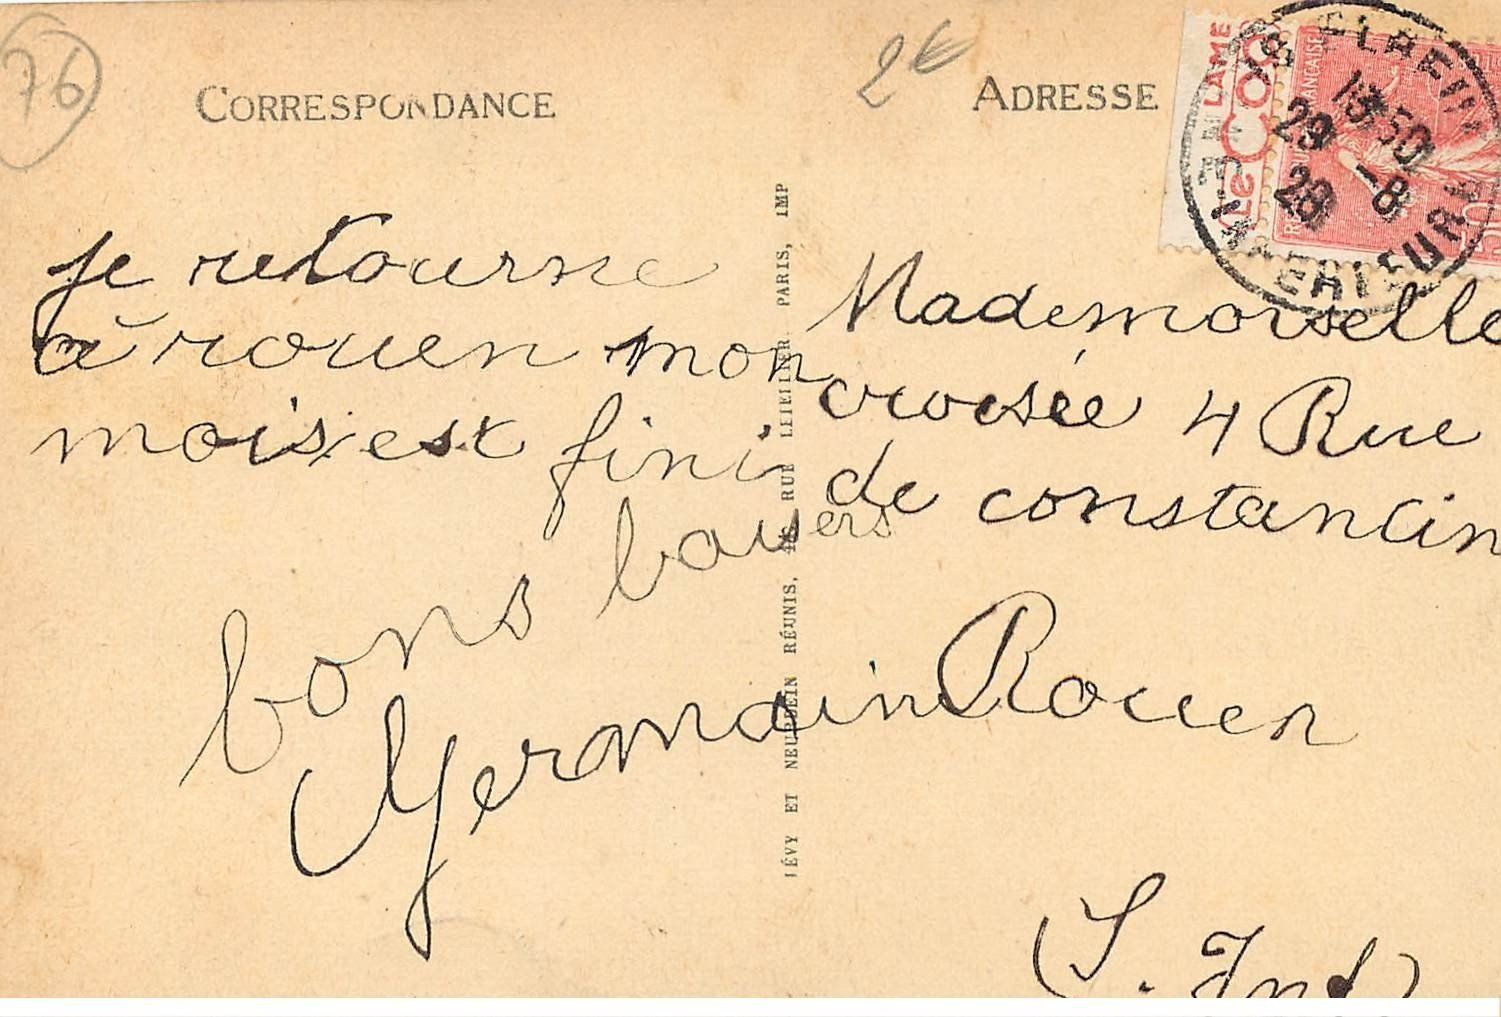 76
2€
CORRESPONDANCE
ADRESSE
je retourne
à rouen mon
mois est fini
bons baisers
Germain
Mademoiselle
croisée 4 Rue
de constantin
Rouen
(S. Inf)
LÉVY ET NEURDEIN RÉUNIS, 44, RUE LETELLIER, PARIS, IMP
LAME
Le COQ
FRANÇAISE
50
13 50
29 -8
28
INFERIEURE